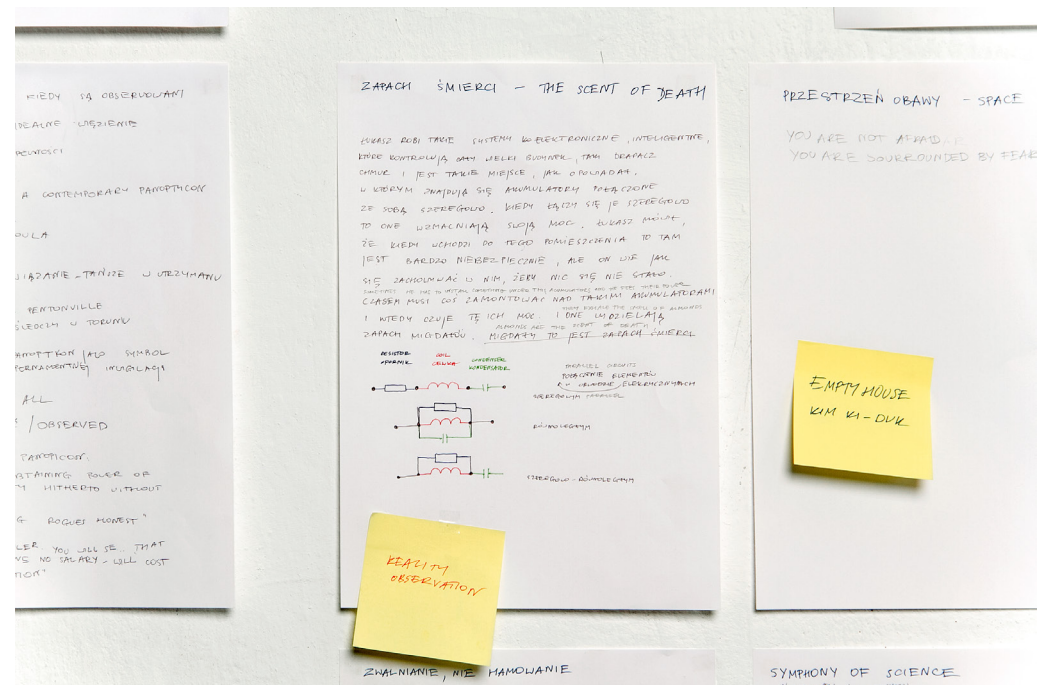 KIEDY SĄ OBSERWOWANI
IDEALNE WIĘZIENIE
A CONTEMPORARY PANOPTICON
WIĄZANIE - TAŃSZE W UTRZYMANIU
PENTONVILLE
ŚLEDCZY W TORUNIU
PANOPTIKON JAKO SYMBOL
PERMAMENTNEJ INWIGILACJI
ALL
/ OBSERVED
PANOPTICON.
OBTAINING POWER OF
HITHERTO WITHOUT
ROGUES HONEST"
YOU WILL SE. THAT
NO SALARY - WILL COST
ZAPACH ŚMIERCI - THE SCENT OF DEATH
ŁUKASZ ROBI TAKIE SYSTEMY ELEKTRONICZNE, INTELIGENTNE,
KTÓRE KONTROLUJĄ CAŁY WIELKI BUDYNEK, TAKI DRAPACZ
CHMUR I JEST TAKIE MIEJSCE, JAK OPOWIADAŁ,
W KTÓRYM ZNAJDUJĄ SIĘ AKUMULATORY POŁĄCZONE
ZE SOBĄ SZEREGOWO. KIEDY ŁĄCZY SIĘ JE SZEREGOWO
TO ONE WZMACNIAJĄ SWOJĄ MOC. ŁUKASZ MÓWIŁ,
ŻE KIEDY WCHODZI DO TEGO POMIESZCZENIA TO TAM
JEST BARDZO NIEBEZPIECZNIE, ALE ON WIE JAK
SIĘ ZACHOWYWAĆ W NIM, ŻEBY NIC SIĘ NIE STAŁO.
CZASEM MUSI COŚ ZAMONTOWAĆ NAD TAKIMI AKUMULATORAMI
I WTEDY CZUJE TĘ ICH MOC. I ONE WYDZIELAJĄ
ALMONDS ARE THE SCENT OF DEATH
ZAPACH MIGDAŁÓW. MIGDAŁY TO JEST ZAPACH ŚMIERCI.
RESISTOR COIL CONDENSER
OPORNIK CEWKA KONDENSATOR
PARALLEL CIRCUITS
POŁĄCZENIE ELEMENTÓW
ELEKTRYCZNYCH
SZEREGOWYM
RÓWNOLEGŁYM
SZEREGOWO - RÓWNOLEGŁYM
REALITY
OBSERVATION
ZWALNIANIE, NIE HAMOWANIE
PRZESTRZEŃ OBAWY - SPACE
YOU ARE NOT AFRAID
YOU ARE SOURROUNDED BY FEAR
EMPTY HOUSE
KIM KI-DUK
SYMPHONY OF SCIENCE